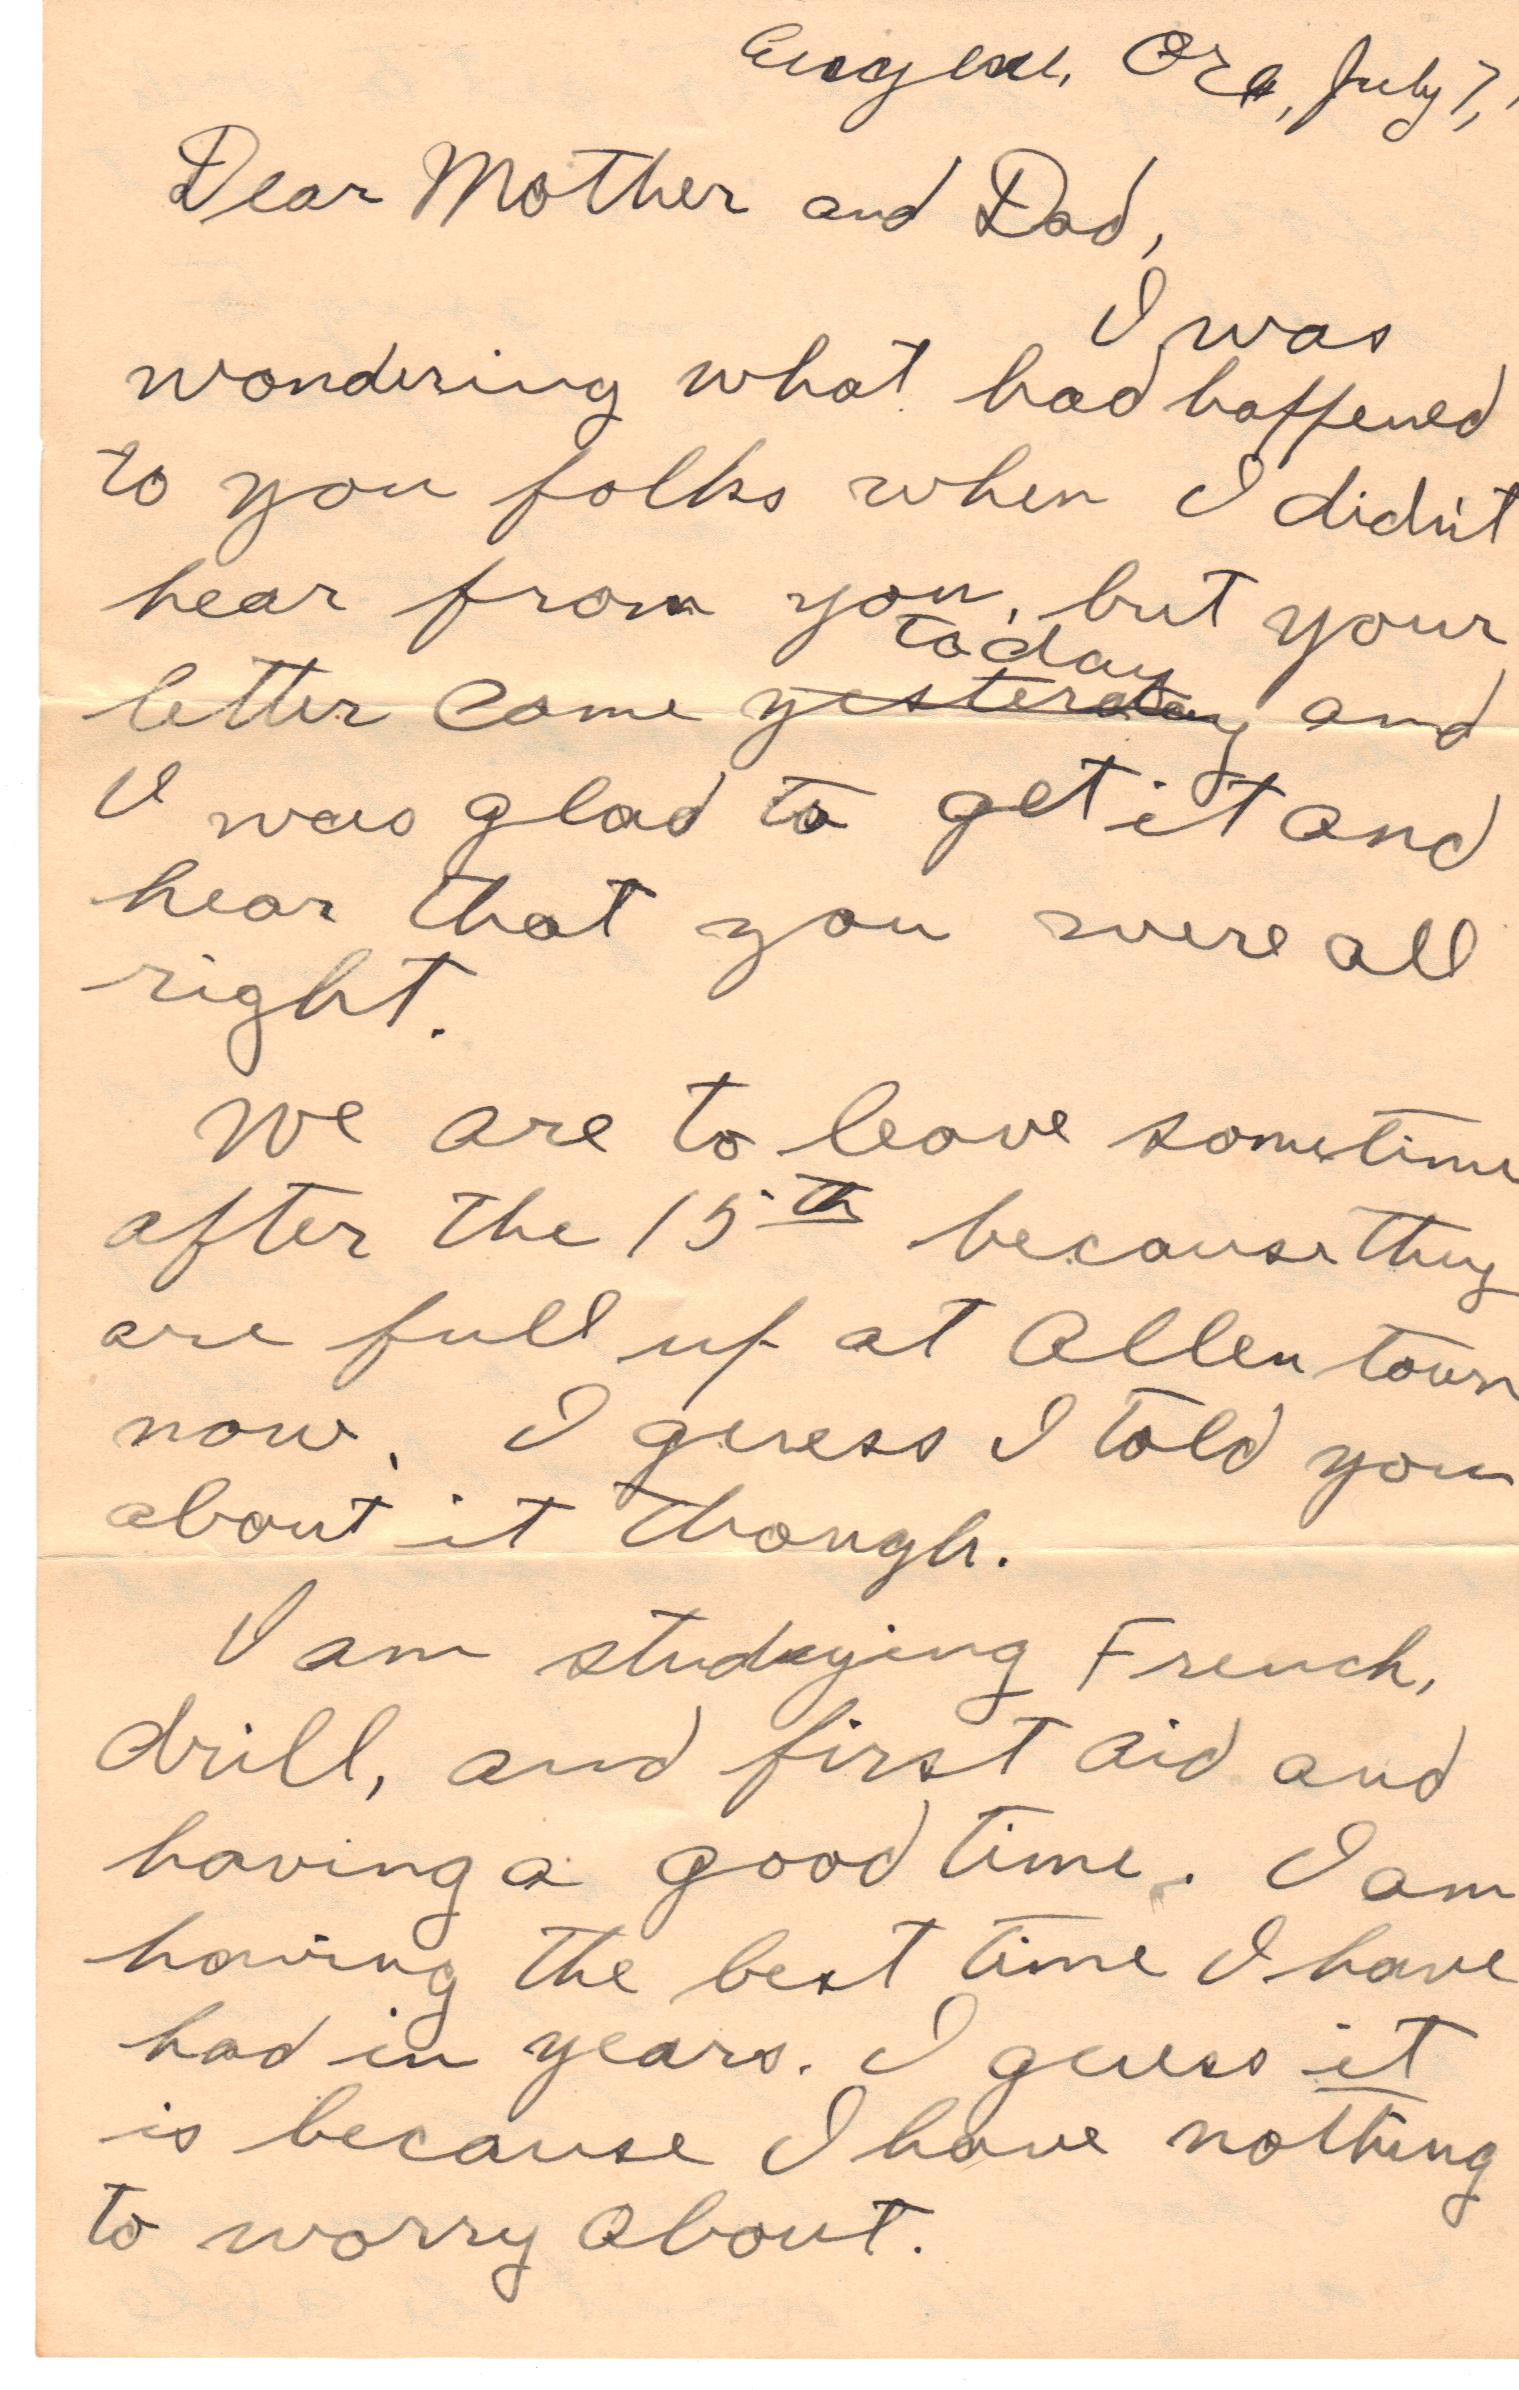 Eugene, Ore, July 7,
Dear Mother and Dad,
I was
wondering what had happened
to you folks when I didn't
hear from you, but your
today
letter came yesterday and
I was glad to get it and
hear that you were all
right.
We are to leave sometime
after the 15th because they
are full up at Allentown
now. I guess I told you
about it though.
I am studying French,
drill, and first aid and
having a good time. I am
having the best time I have
had in years. I guess it
is because I have nothing
to worry about.